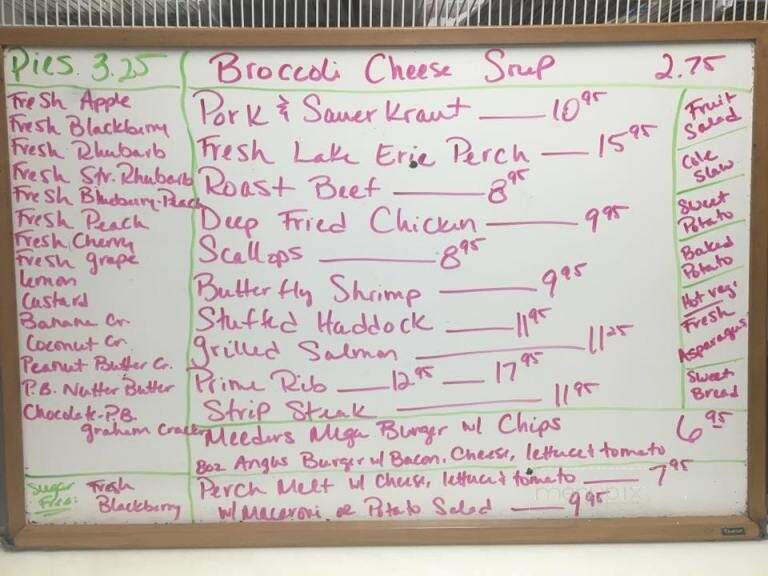 Pies 3.25
Fresh Apple
Fresh Blackberry
Fresh Rhubarb
Fresh Str. Rhubarb
Fresh Blueberry-Peach
Fresh Peach
Fresh Cherry
Fresh grape
Lemon
Custard
Banana Cr.
Coconut Cr.
Peanut Butter Cr.
P.B. Nutter Butter
Chocolate-P.B.
graham Cracker
Sugar Free: Fresh Blackberry
Broccoli Cheese Soup 2.75
Pork & Sauerkraut 10.95
Fresh Lake Erie Perch 15.95
Roast Beef 8.95
Deep Fried Chicken 9.95
Scallops 8.95
Butterfly Shrimp 9.95
Stuffed Haddock 11.95
grilled Salmon 11.25
Prime Rib 12.95 — 17.95
Strip Steak 11.95
Meeders Mega Burger w/ Chips 6.95
8oz Angus Burger w/ Bacon, Cheese, lettuce & tomato
Perch Melt w/ Cheese, lettuce & tomato 7.95
w/ Macaroni or Potato Salad 9.95
Fruit
Salad
Cole
Slaw
Sweet
Potato
Baked
Potato
Hot veg:
Fresh
Asparagus
Sweet
Bread